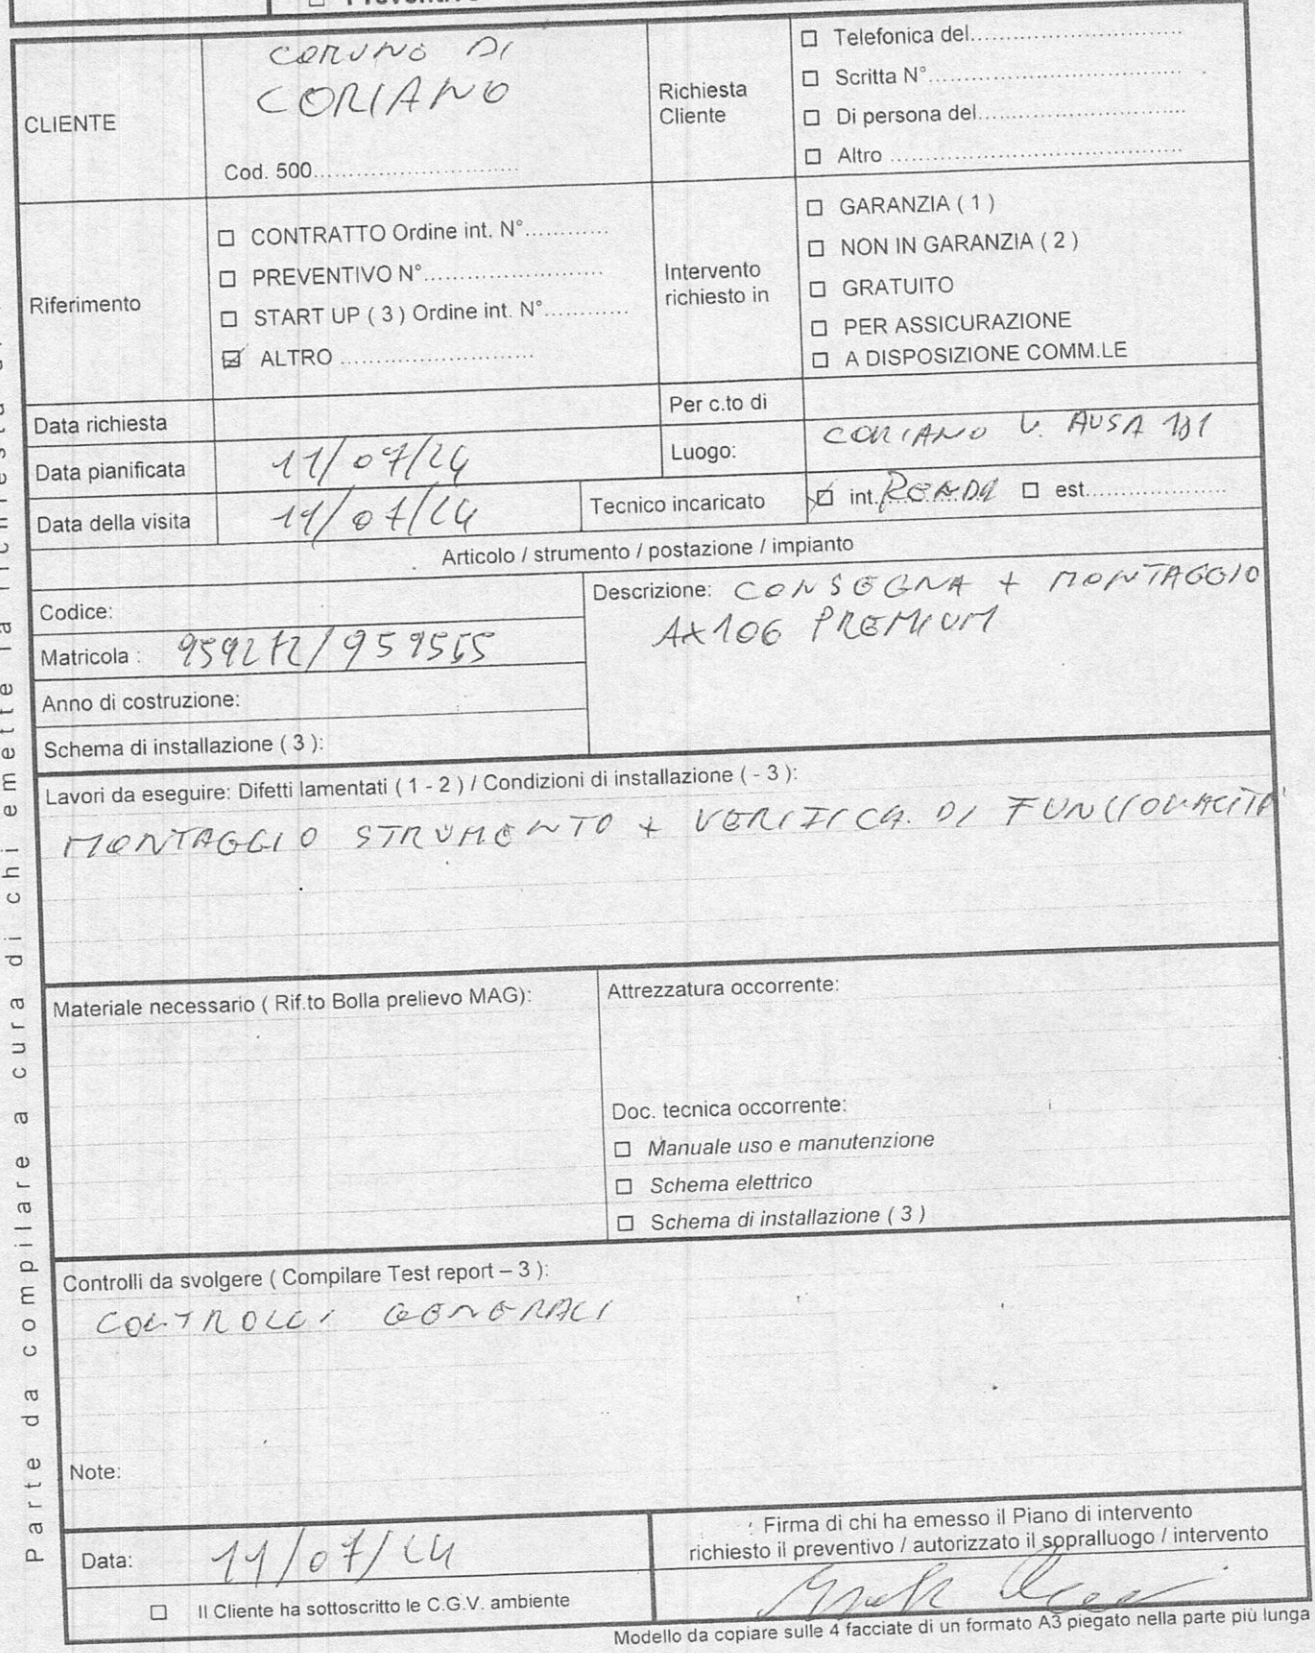 CLIENTE
COMUNO DI
CORIANO
Cod. 500..............................
Richiesta
Cliente
☐ Telefonica del..............................
☐ Scritta N°....................................
☐ Di persona del..............................
☐ Altro ..........................................
Riferimento
☐ CONTRATTO Ordine int. N°............
☐ PREVENTIVO N°..........................
☐ START UP ( 3 ) Ordine int. N°............
☑ ALTRO ............................
Intervento
richiesto in
☐ GARANZIA ( 1 )
☐ NON IN GARANZIA ( 2 )
☐ GRATUITO
☐ PER ASSICURAZIONE
☐ A DISPOSIZIONE COMM.LE
Data richiesta
Per c.to di
Data pianificata 11/07/24
Luogo: CORIANO V. AUSA
Data della visita 11/07/24
Tecnico incaricato ☑ int. ☐ est.....................
Articolo / strumento / postazione / impianto
Codice:
Matricola :
Anno di costruzione:
Schema di installazione ( 3 ):
Descrizione: CONSEGNA + MONTAGGIO
AX106 PREMIUM
Lavori da eseguire: Difetti lamentati ( 1 - 2 ) / Condizioni di installazione ( - 3 ):
MONTAGGIO STRUMENTO + VERIFICA DI FUNZIONALITÀ
Materiale necessario ( Rif.to Bolla prelievo MAG):
Attrezzatura occorrente:
Doc. tecnica occorrente:
☐ Manuale uso e manutenzione
☐ Schema elettrico
☐ Schema di installazione ( 3 )
Controlli da svolgere ( Compilare Test report – 3 ):
CONTROLLI GENERALI
Note:
Data: 11/07/24
☐ Il Cliente ha sottoscritto le C.G.V. ambiente
Firma di chi ha emesso il Piano di intervento
richiesto il preventivo / autorizzato il sopralluogo / intervento
Modello da copiare sulle 4 facciate di un formato A3 piegato nella parte più lunga
Parte da compilare a cura di chi emette la richiesta